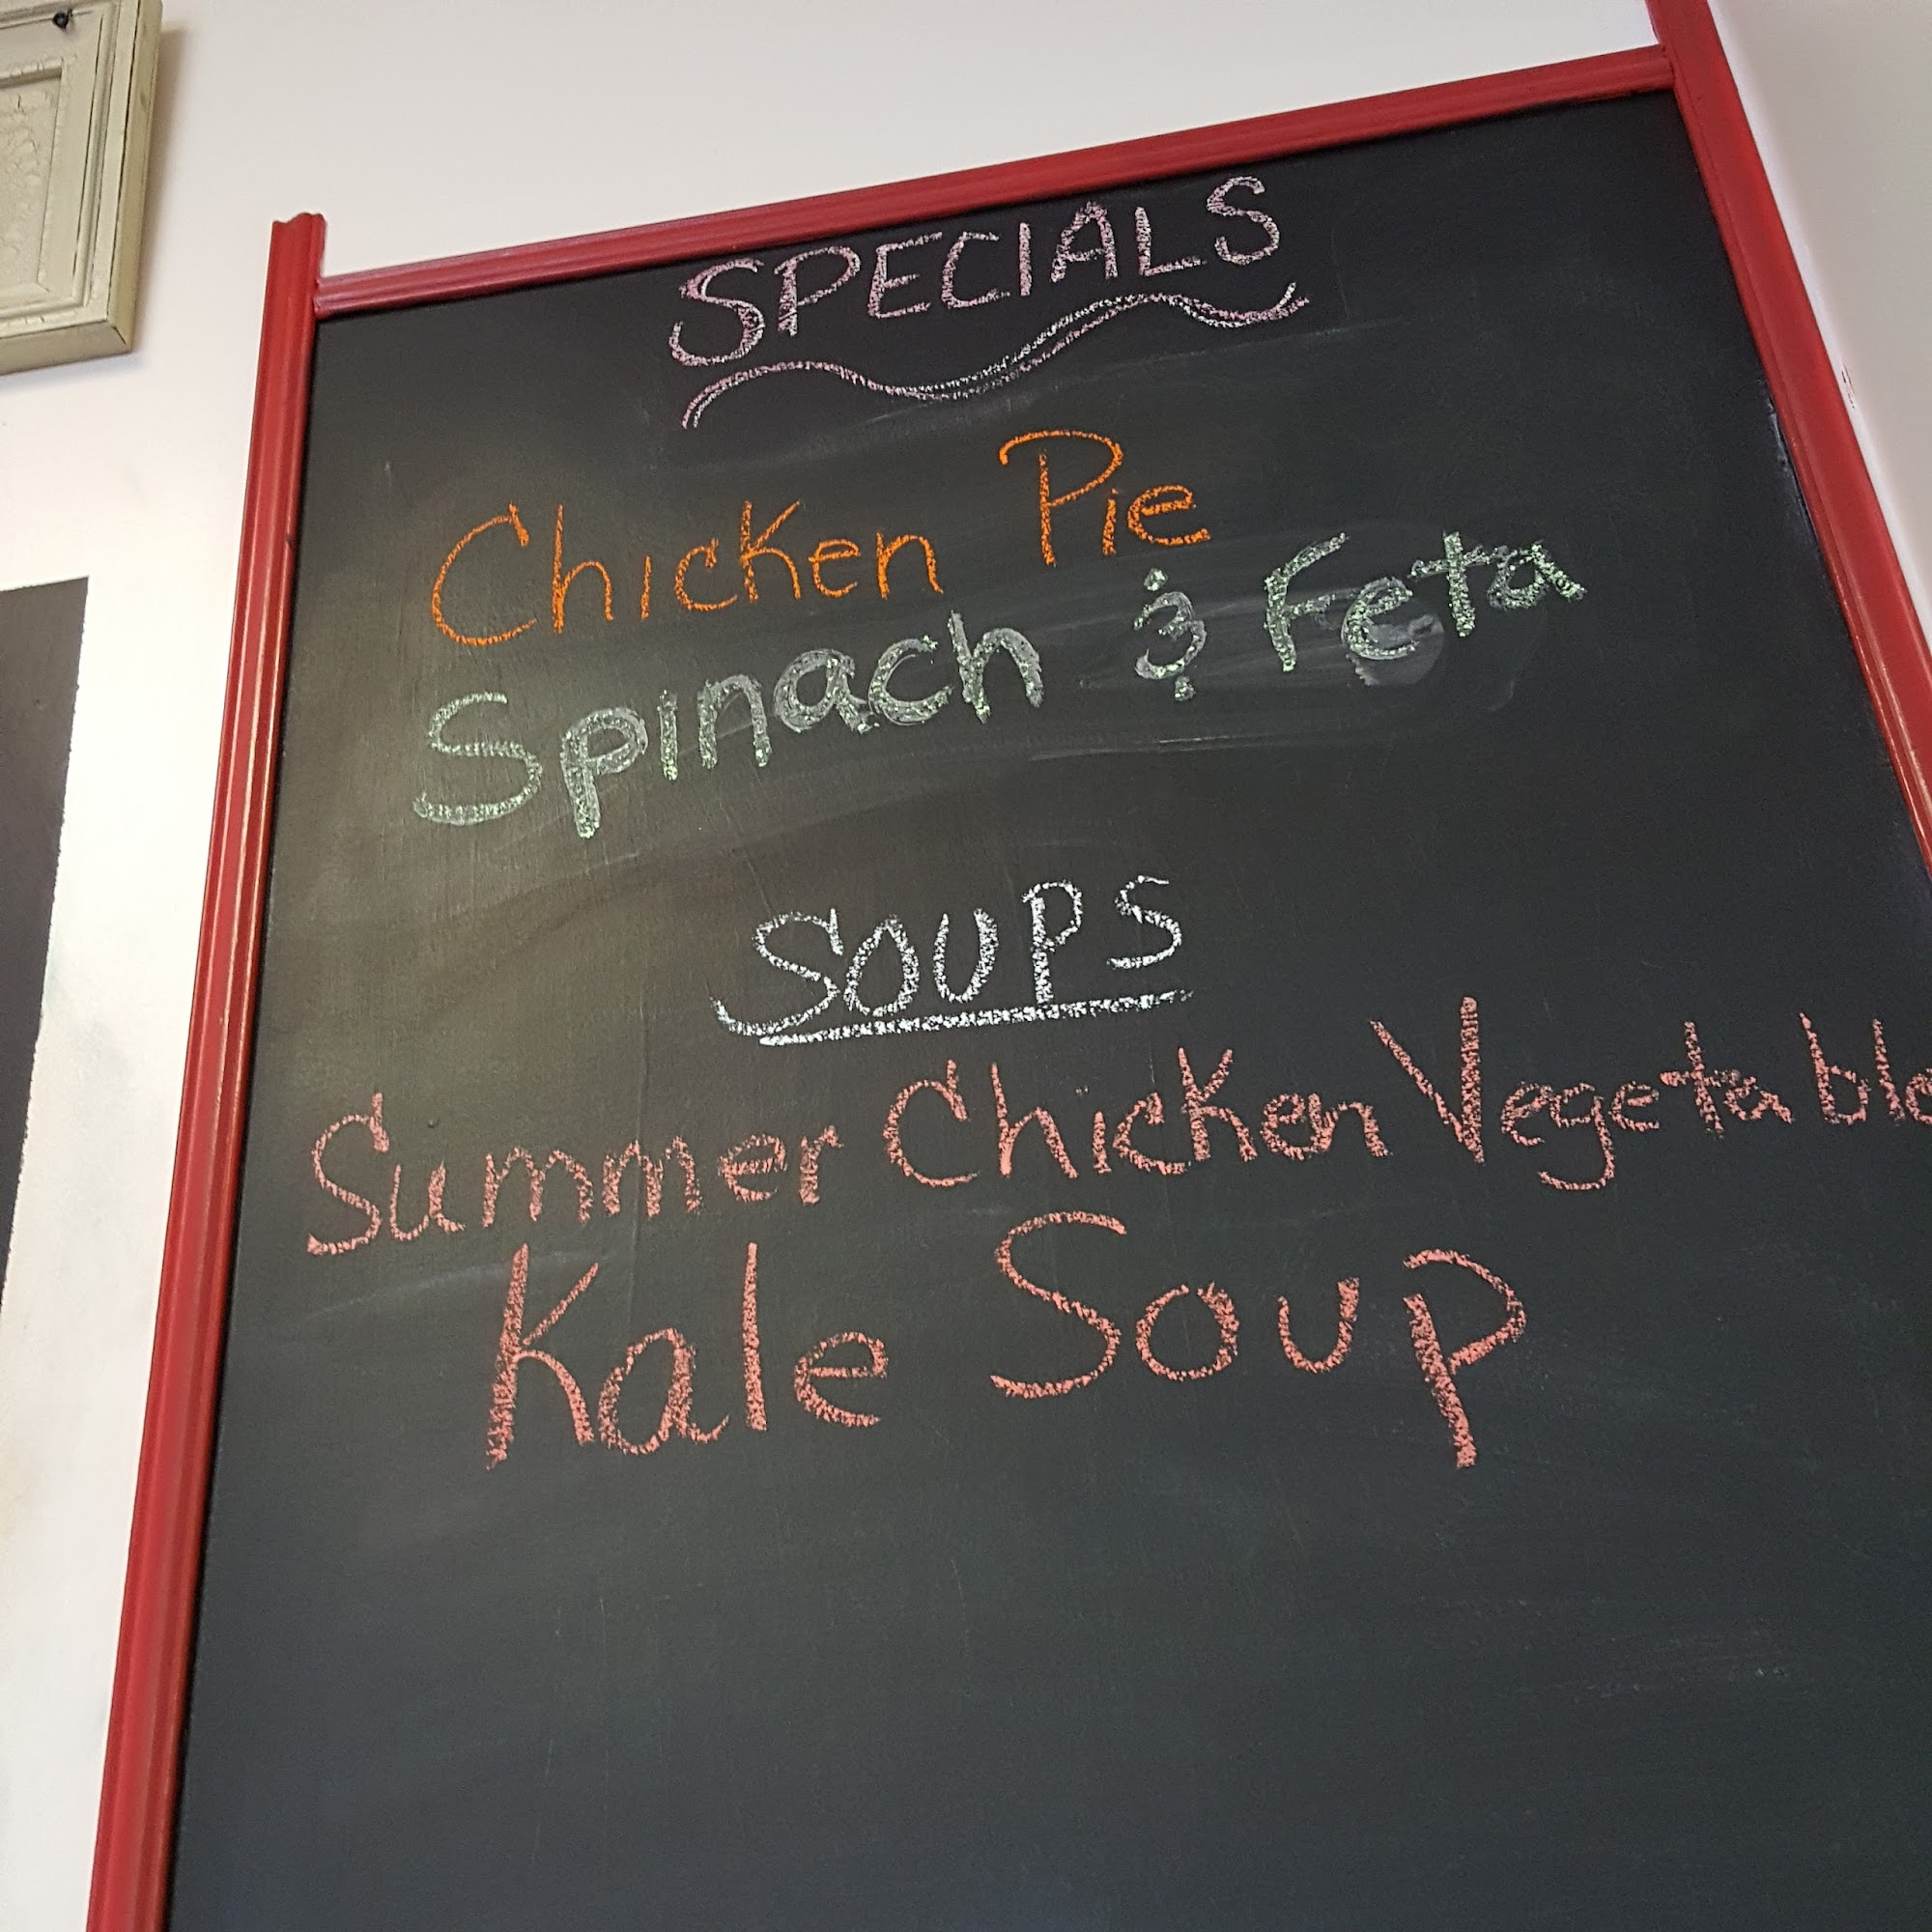 SPECIALS
Chicken Pie
Spinach & Feta
SOUPS
Summer Chicken Vegetable
Kale Soup